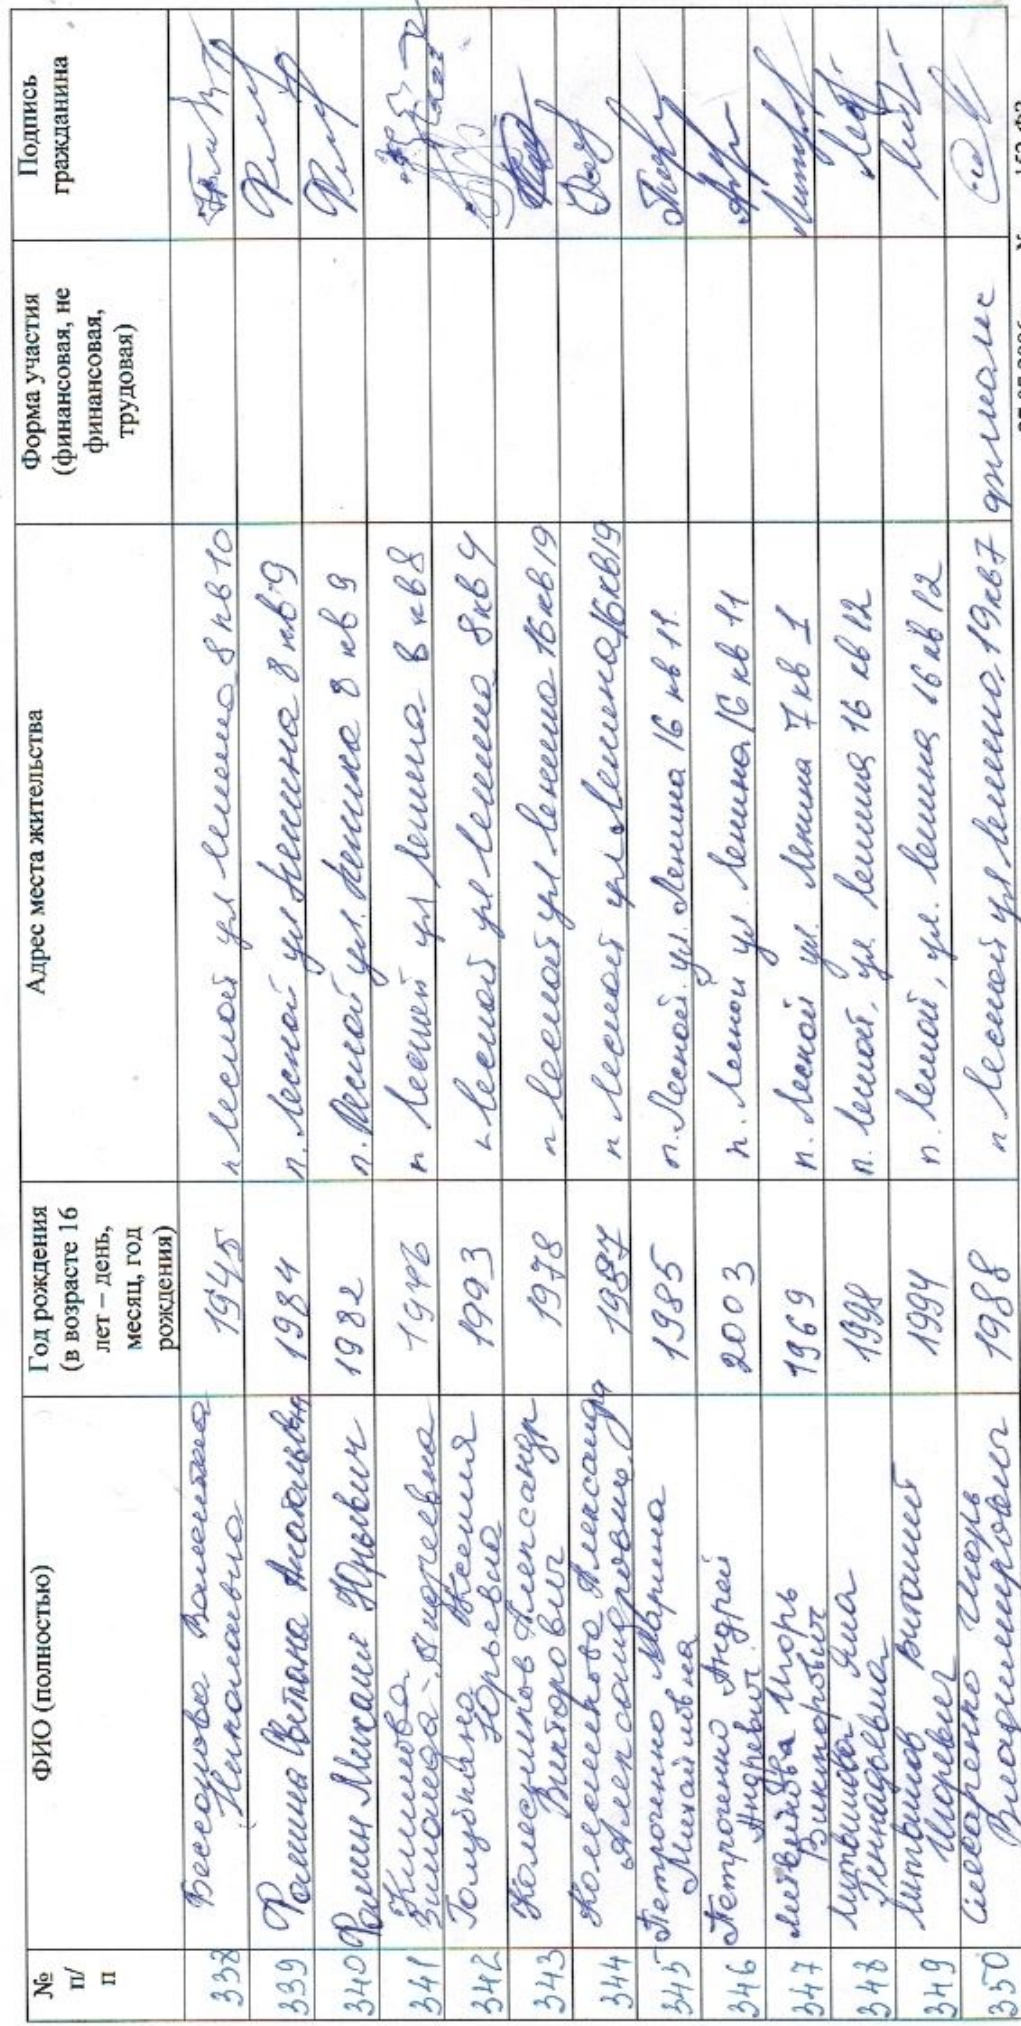 № п/п
ФИО (полностью)
Год рождения (в возрасте 16 лет – день, месяц, год рождения)
Адрес места жительства
Форма участия (финансовая, не финансовая, трудовая)
Подпись гражданина
338 Бессонова Валентина Николаевна 1945 п Лесной ул Ленина 8 кв 10
339 Фомина Анатольевна 1984 п. Лесной ул Ленина 8 кв 9
340 Фомин Михаил Юрьевич 1982 п. Лесной ул. Ленина 8 кв 9
341 Климова Зинаида Андреевна 1946 п Лесной ул Ленина 8 кв 8
342 Голубкина Ксения Юрьевна 1993 п Лесной ул Ленина 8 кв 4
343 Колесников Александр Викторович 1978 п Лесной ул Ленина 16 кв 19
344 Колесникова Александра 1987 п Лесной ул Ленина 16 кв 19
345 Петроченко Марина Михайловна 1985 п. Лесной. ул. Ленина 16 кв 11.
346 Петроченко Андрей Андреевич 2003 п. Лесной ул. Ленина 16 кв 11
347 Игорь Викторович 1969 п. Лесной ул. Ленина 7 кв 1
348 Яна Геннадьевна 1998 п. Лесной, ул. Ленина 16 кв 12
349 Игоревич 1994 п. Лесной, ул. Ленина 16 кв 12
350 Слесаренко Игорь Владимирович 1988 п. Лесной ул Ленина 19 кв 7